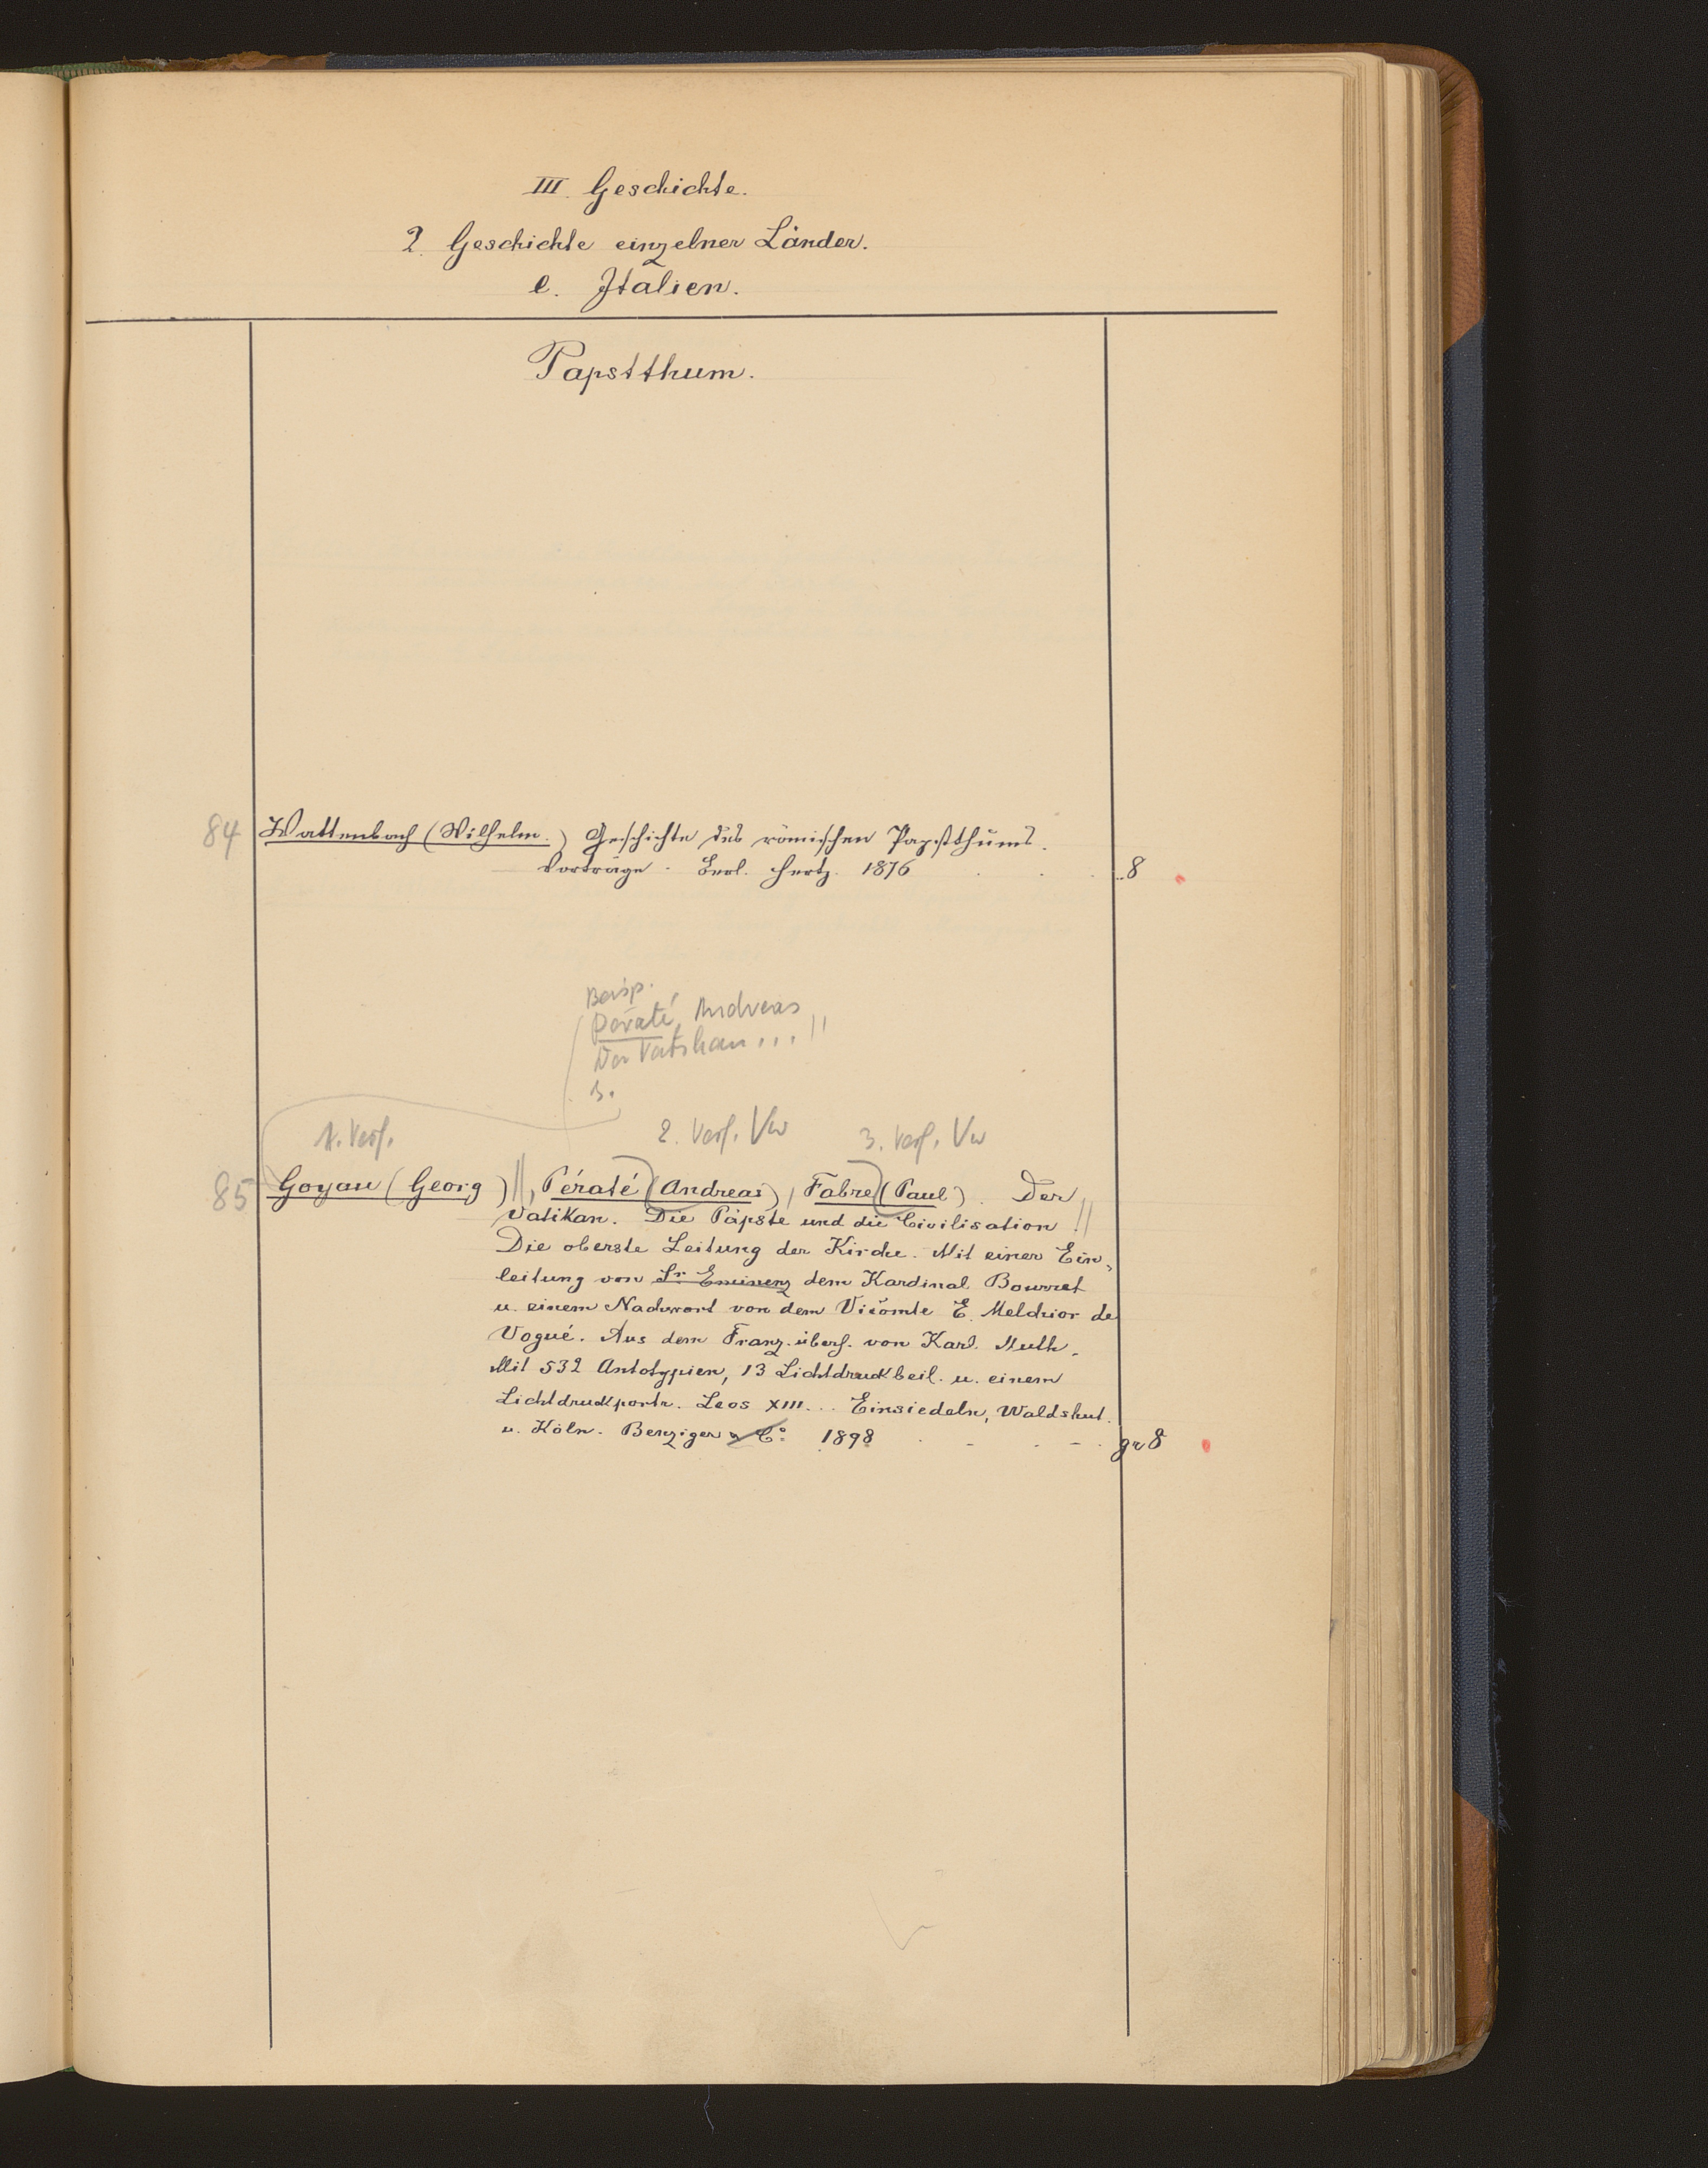 III. Geschichte.
2. Geschichte einzelner Länder.
e. Italien.
Papstthum.
84 Wattenbach (Wilhelm.) Geschichte des römischen Papstthums.
Vorträge. Berl. Hertz. 1876 . . . 8
Beisp.
Pératé, Andreas
Der Vatikan... //
s.
1. Verf. 2. Verf. Vw 3. Verf. Vw
85 Goyau (Georg) //, Pératé (Andreas), Fabre (Paul). Der
Vatikan. Die Päpste und die Civilisation //
Die oberste Leitung der Kirche. Mit einer Ein-
leitung von Sr. Eminenz dem Kardinal Bourret
u. einem Nachwort von dem Vicomte E. Melchior de
Vogué. Aus dem Franz. übers. von Karl Muth.
Mit 532 Autotypien, 13 Lichtdruckbeil. u. einem
Lichtdruckportr. Leos XIII... Einsiedeln, Waldshut.
u. Köln. Benziger & Co. 1898 . - . - . gr 8